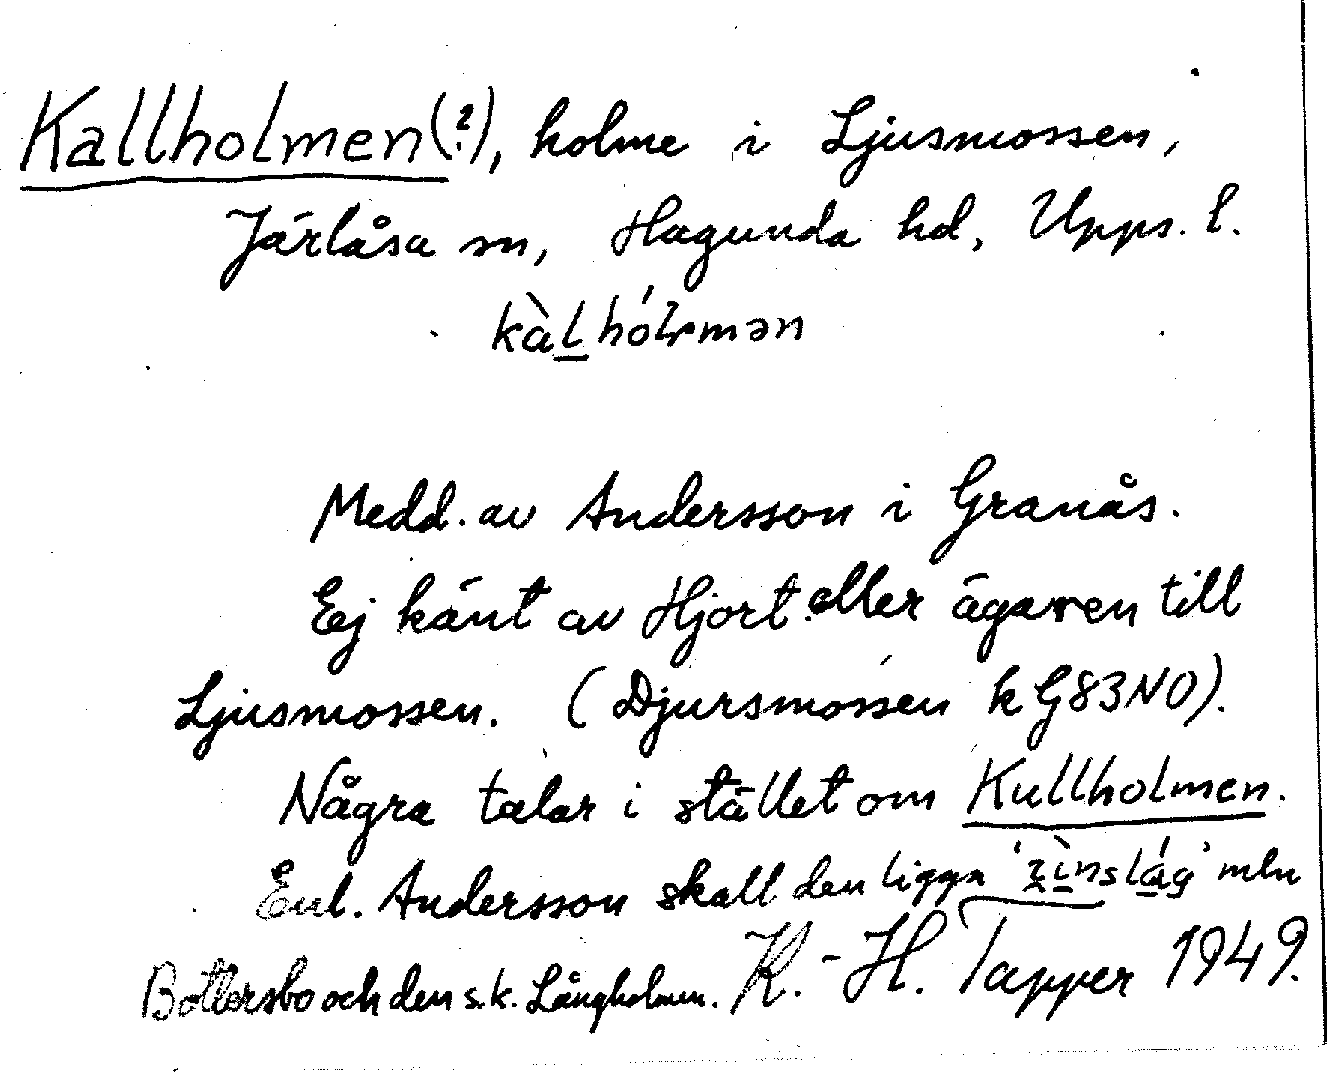 Kallholmen(?), holme i Ljusmossen,
Järlåsa sn, Hagunda hd, Upps. l.
kàl̲hól̥mən
Medd. av Andersson i Granås.
Ej känt av Hjort eller ägaren till
Ljusmossen. (Djursmossen k G83NO).
Några talar i stället om Kullholmen.
Enl. Andersson skall den ligga mln
Bottersbo och den s.k. Långholmen. K.-H. Tapper 1949.